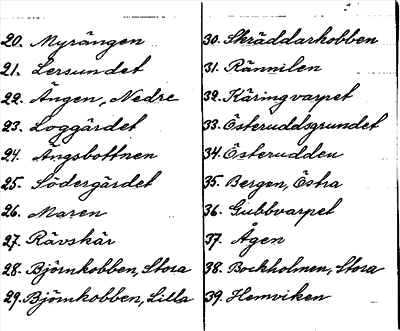 20. Myrängen
21. Lersundet
22. Ängen, Nedre
23. Loggärdet
24. Ängsbottnen
25. Södergärdet
26. Maren
27. Rävskär
28. Björnkobben, Stora
29. Björnkobben, Lilla
30. Skräddarkobben
31. Rännilen
32. Käringvarpet
33. Österuddsgrundet
34. Österudden
35. Bergen, Östra
36. Gubbvarpet
37. Ågen
38. Bockholmen, Stora
39. Hemviken